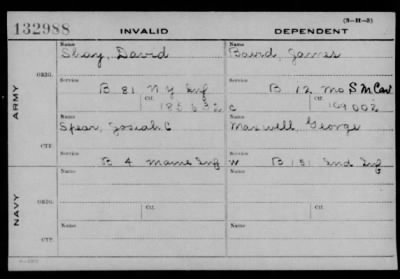 (3-H-3)
132988 INVALID DEPENDENT
Name Name
Shay, David Baird, James
ORIG.
Service Service
B 81 N Y Inf B 12 Mo S M Cav
Ctf. Ctf.
C
ARMY
Name Name
Spear, Josiah C Maxwell, George
CTF.
Service Service
B 4 Maine Inf W B 151 Ind Inf
Name Name
ORIG.
Service Service
Ctf. Ctf.
NAVY
Name Name
CTF.
Service Service